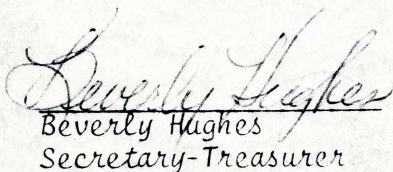 Beverly Hughes
Beverly Hughes
Secretary-Treasurer